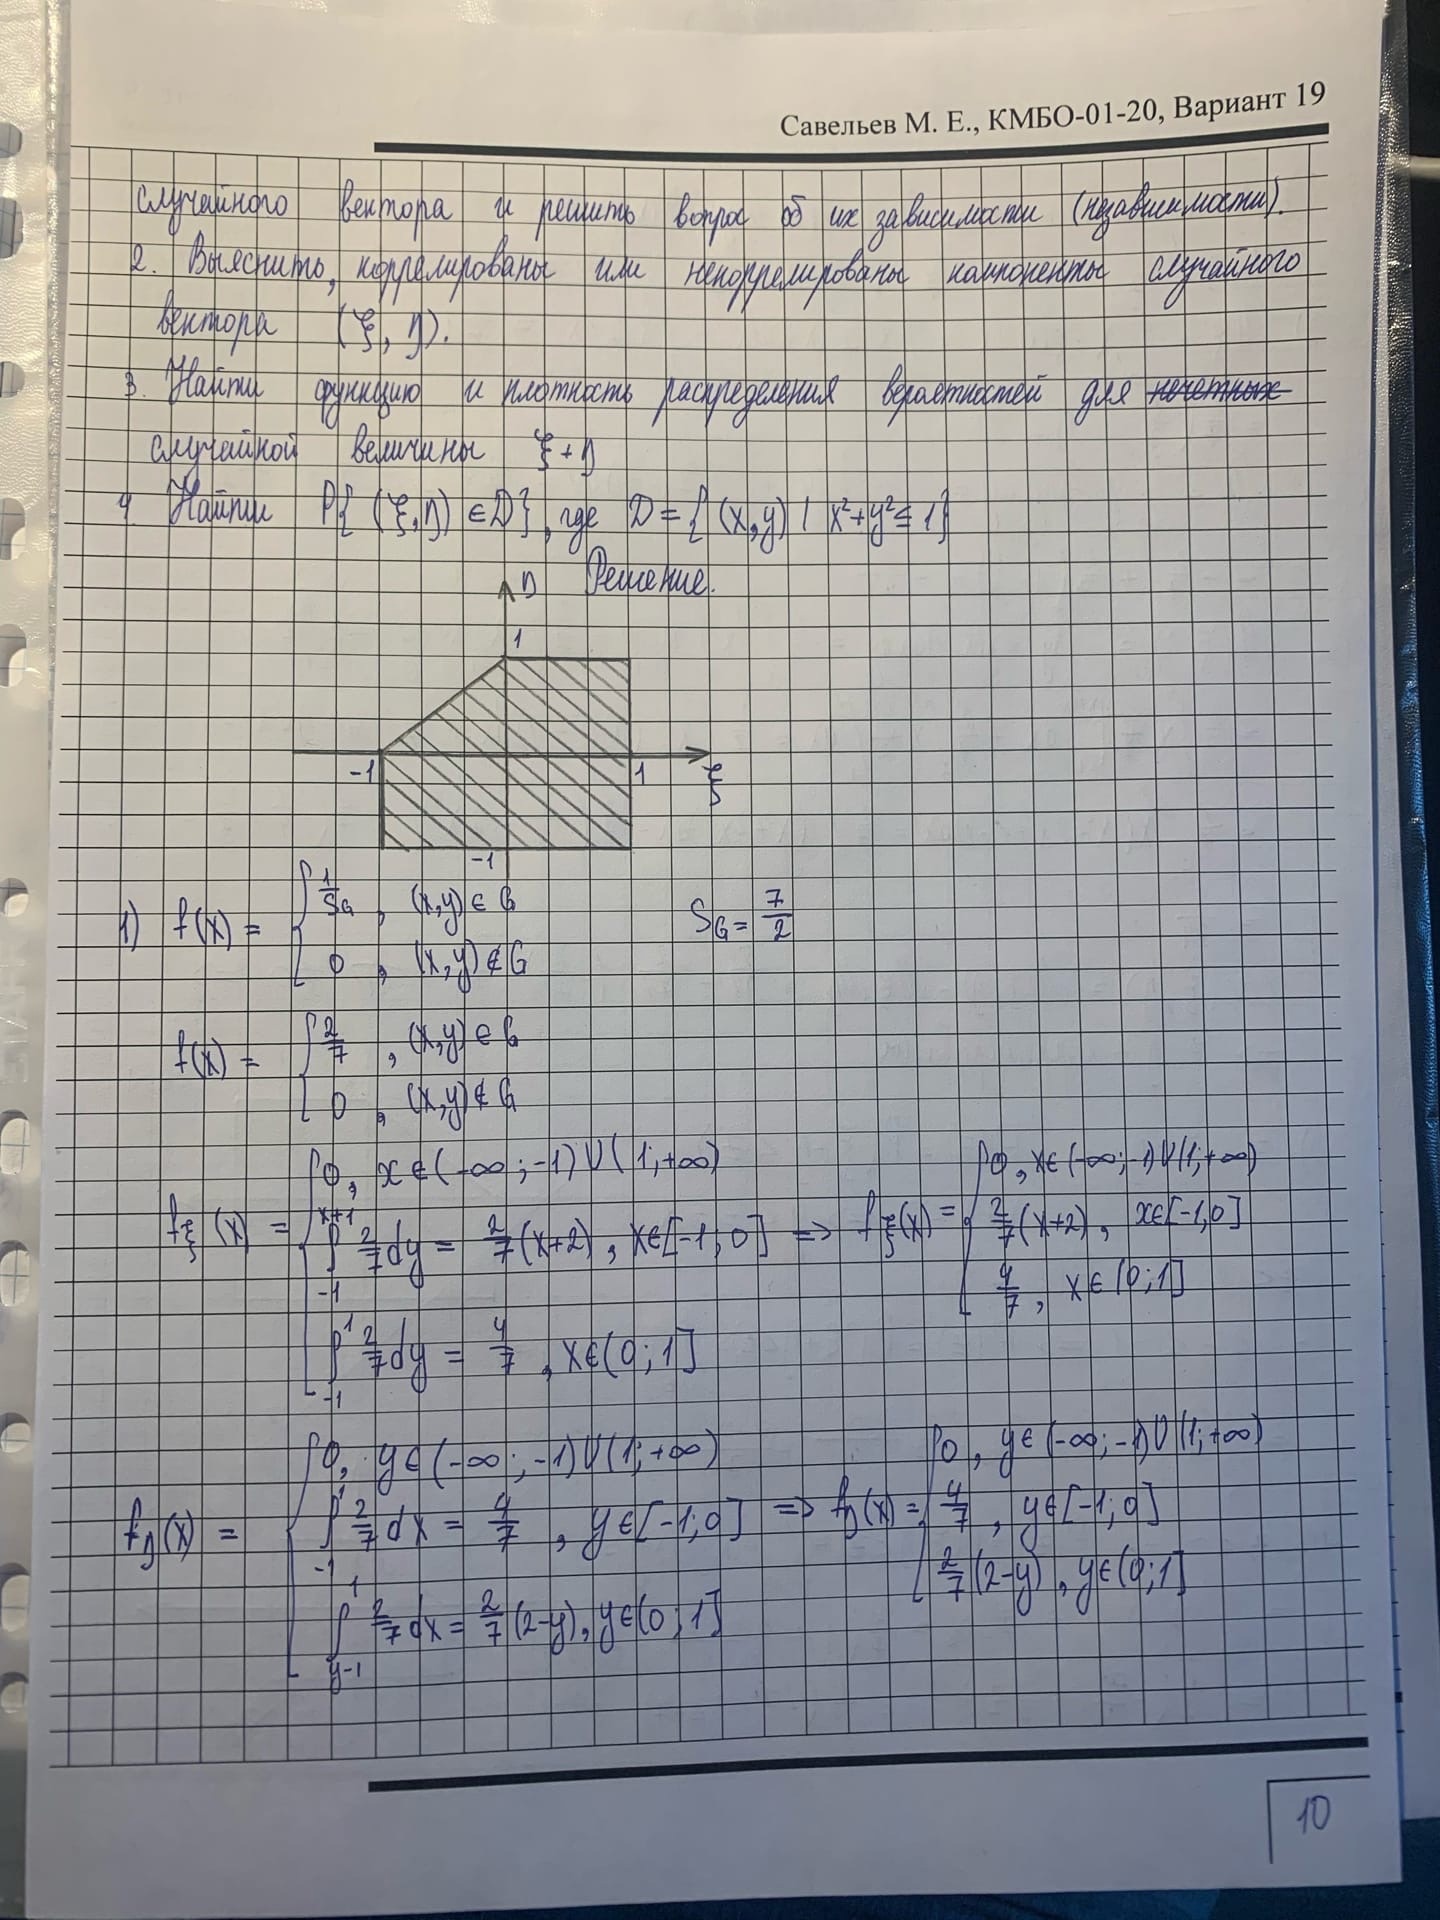 Савельев М. Е., КМБО-01-20, Вариант 19
случайного вектора и решить вопрос об их зависимости (независимости).
2. Выяснить, коррелированы или некоррелированы компоненты случайного
вектора (ξ, η).
3. Найти функцию и плотность распределения вероятностей для
случайной величины ξ + η
4 Найти P{ (ξ, η) ∈ D }, где D = { (x, y) | x² + y² ≤ 1 }
Решение.
η
1
-1 1
ξ
-1
1) f(x) = { 1/S_G , (x,y) ∈ G S_G = 7/2
0 , (x,y) ∉ G
f(x) = { 2/7 , (x,y) ∈ G
0 , (x,y) ∉ G
f_ξ(x) = { 0, x ∈ (-∞; -1) U (1; +∞)
∫_{-1}^{x+1} 2/7 dy = 2/7 (x+2), x ∈ [-1; 0]
∫_{-1}^{1} 2/7 dy = 4/7 , x ∈ (0; 1]
=> f_ξ(x) = { 0, x ∈ (-∞; -1) U (1; +∞)
2/7 (x+2), x ∈ [-1, 0]
4/7 , x ∈ (0; 1]
f_η(x) = { 0, y ∈ (-∞; -1) U (1; +∞)
∫_{-1}^{1} 2/7 dx = 4/7 , y ∈ [-1; 0]
∫_{y-1}^{1} 2/7 dx = 2/7 (2-y), y ∈ (0; 1]
=> f_η(x) = { 0, y ∈ (-∞; -1) U (1; +∞)
4/7 , y ∈ [-1; 0]
2/7 (2-y), y ∈ (0; 1]
10